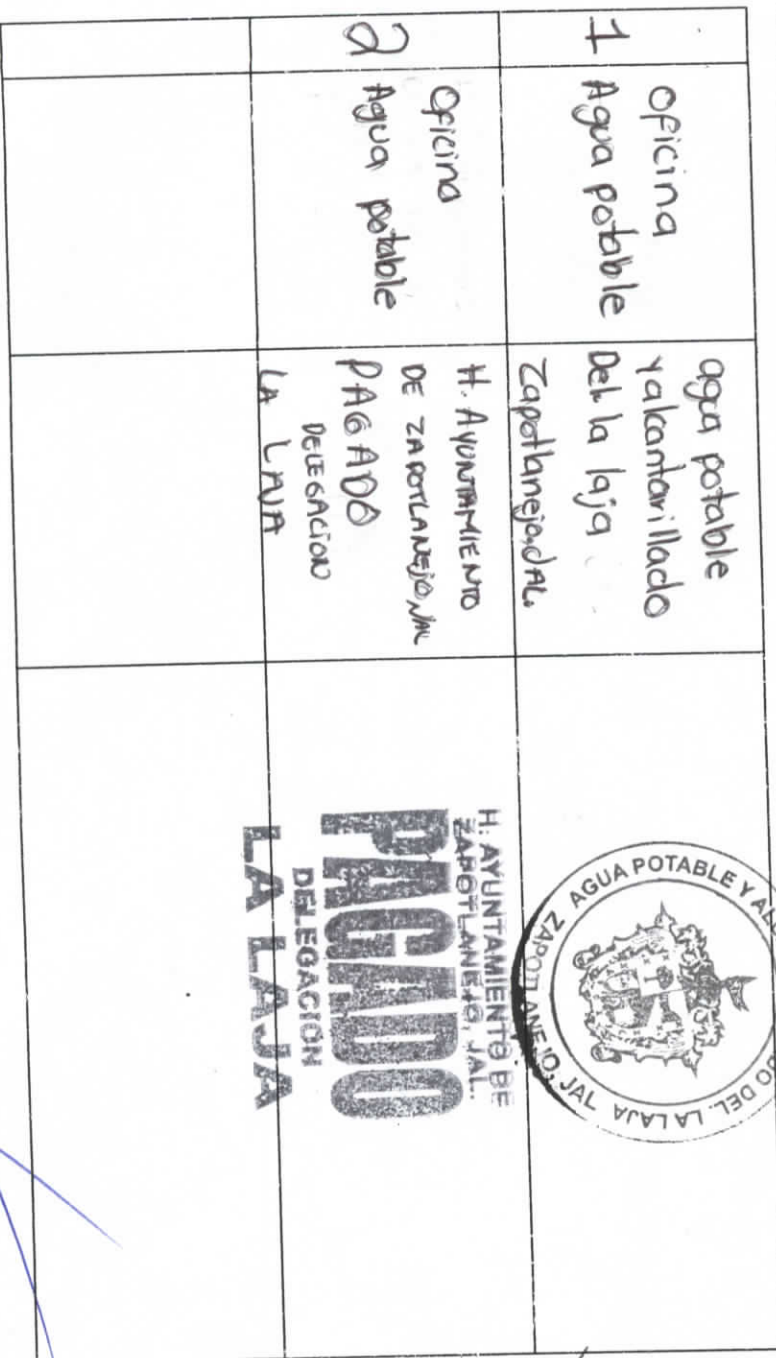 1
Oficina
Agua potable
agua potable
y alcantarillado
Del. la laja
Zapotlanejo, JAL.
AGUA POTABLE Y
DO DEL. LA LAJA
ZAPOTLANEJO, JAL
2
Oficina
Agua potable
H. AYUNTAMIENTO
DE ZAPOTLANEJO, JAL
PAGADO
DELEGACION
LA LAJA
H. AYUNTAMIENTO DE
ZAPOTLANEJO, JAL.
PAGADO
DELEGACION
LA LAJA